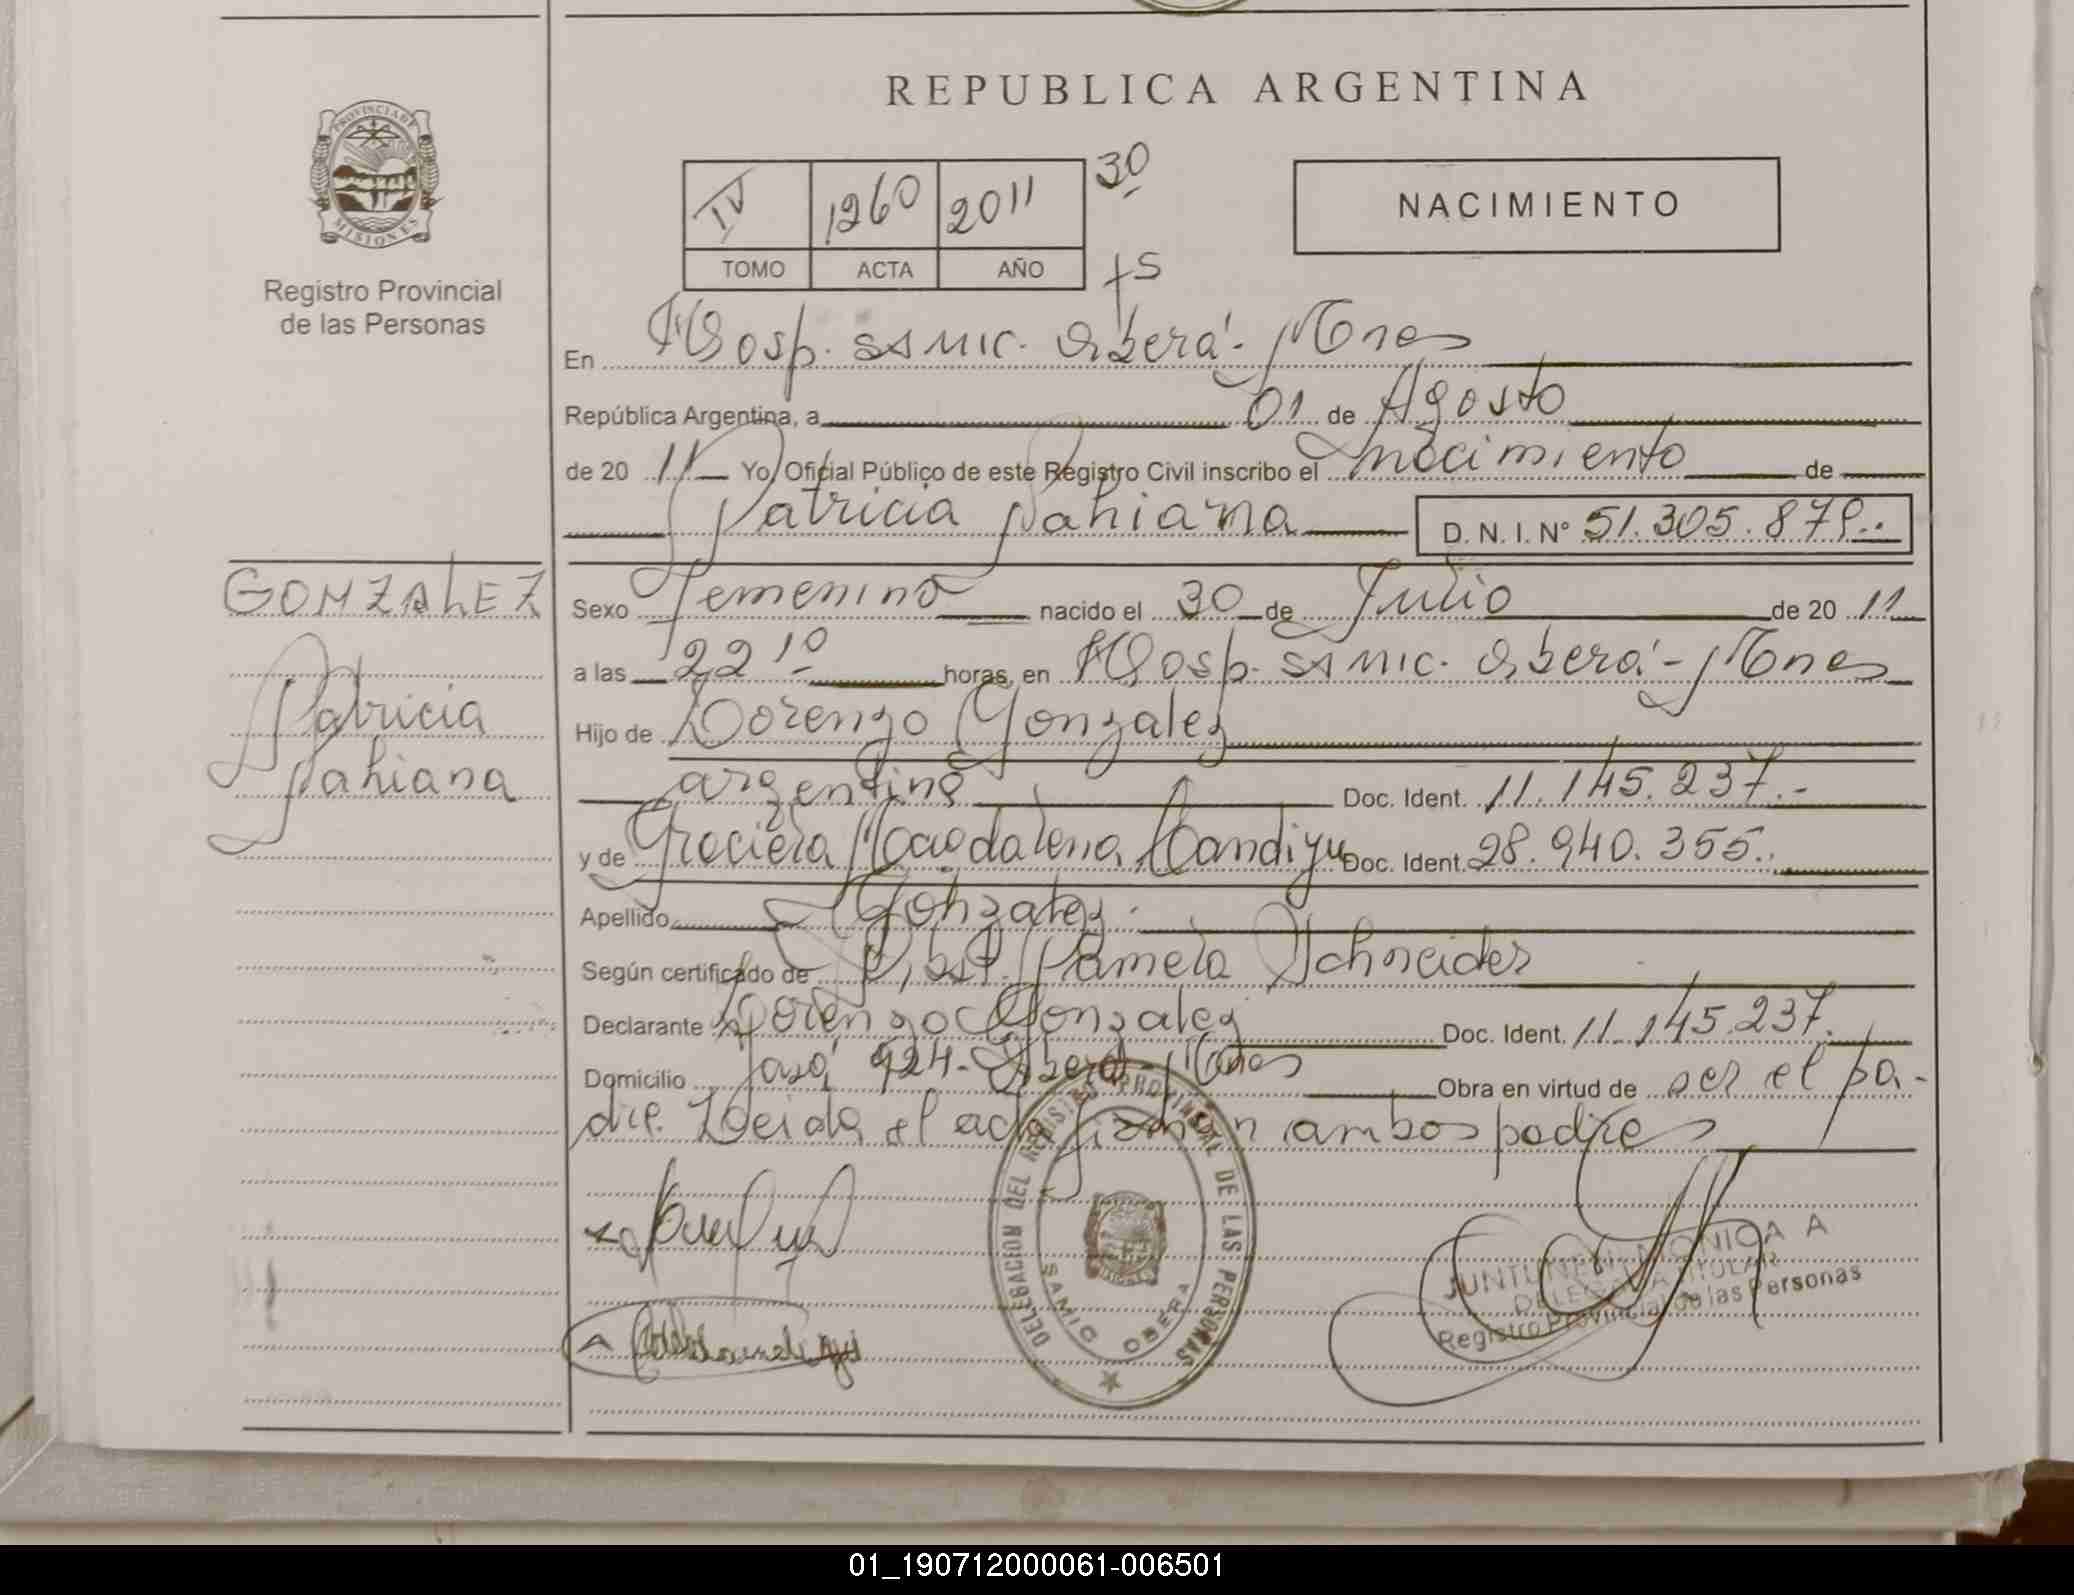 REPUBLICA ARGENTINA
PROVINCIA DE MISIONES
Registro Provincial
de las Personas
IV 1260 2011 30
TOMO ACTA AÑO
NACIMIENTO
En Hosp. SAMIC. Oberá - Mnes
República Argentina, a 01 de Agosto
de 2011 Yo, Oficial Público de este Registro Civil inscribo el nacimiento de
Patricia Fahiana D. N. I. Nº 51.305.879..
GONZALEZ
Patricia
Fahiana
Sexo Femenino nacido el 30 de Julio de 2011
a las 22 10 horas, en Hosp. SAMIC. Oberá - Mnes
Hijo de Lorenzo Gonzalez
argentino Doc. Ident. 11.145.237.-
y de Graciela Magdalena Mandiyu Doc. Ident. 28.940.355..
Apellido Gonzalez.
Según certificado de Obst. Pamela Schneider
Declarante Lorenzo Gonzalez Doc. Ident. 11.145.237.
Domicilio 924 - Oberá - Mnes Obra en virtud de ser el pa-
dre. Leida el acta firman ambos padres
DELEGACION DEL REGISTRO PROVINCIAL DE LAS PERSONAS
SAMIC OBERA
MONICA A
DELEGADA TITULAR
Registro Provincial de las Personas
01_190712000061-006501